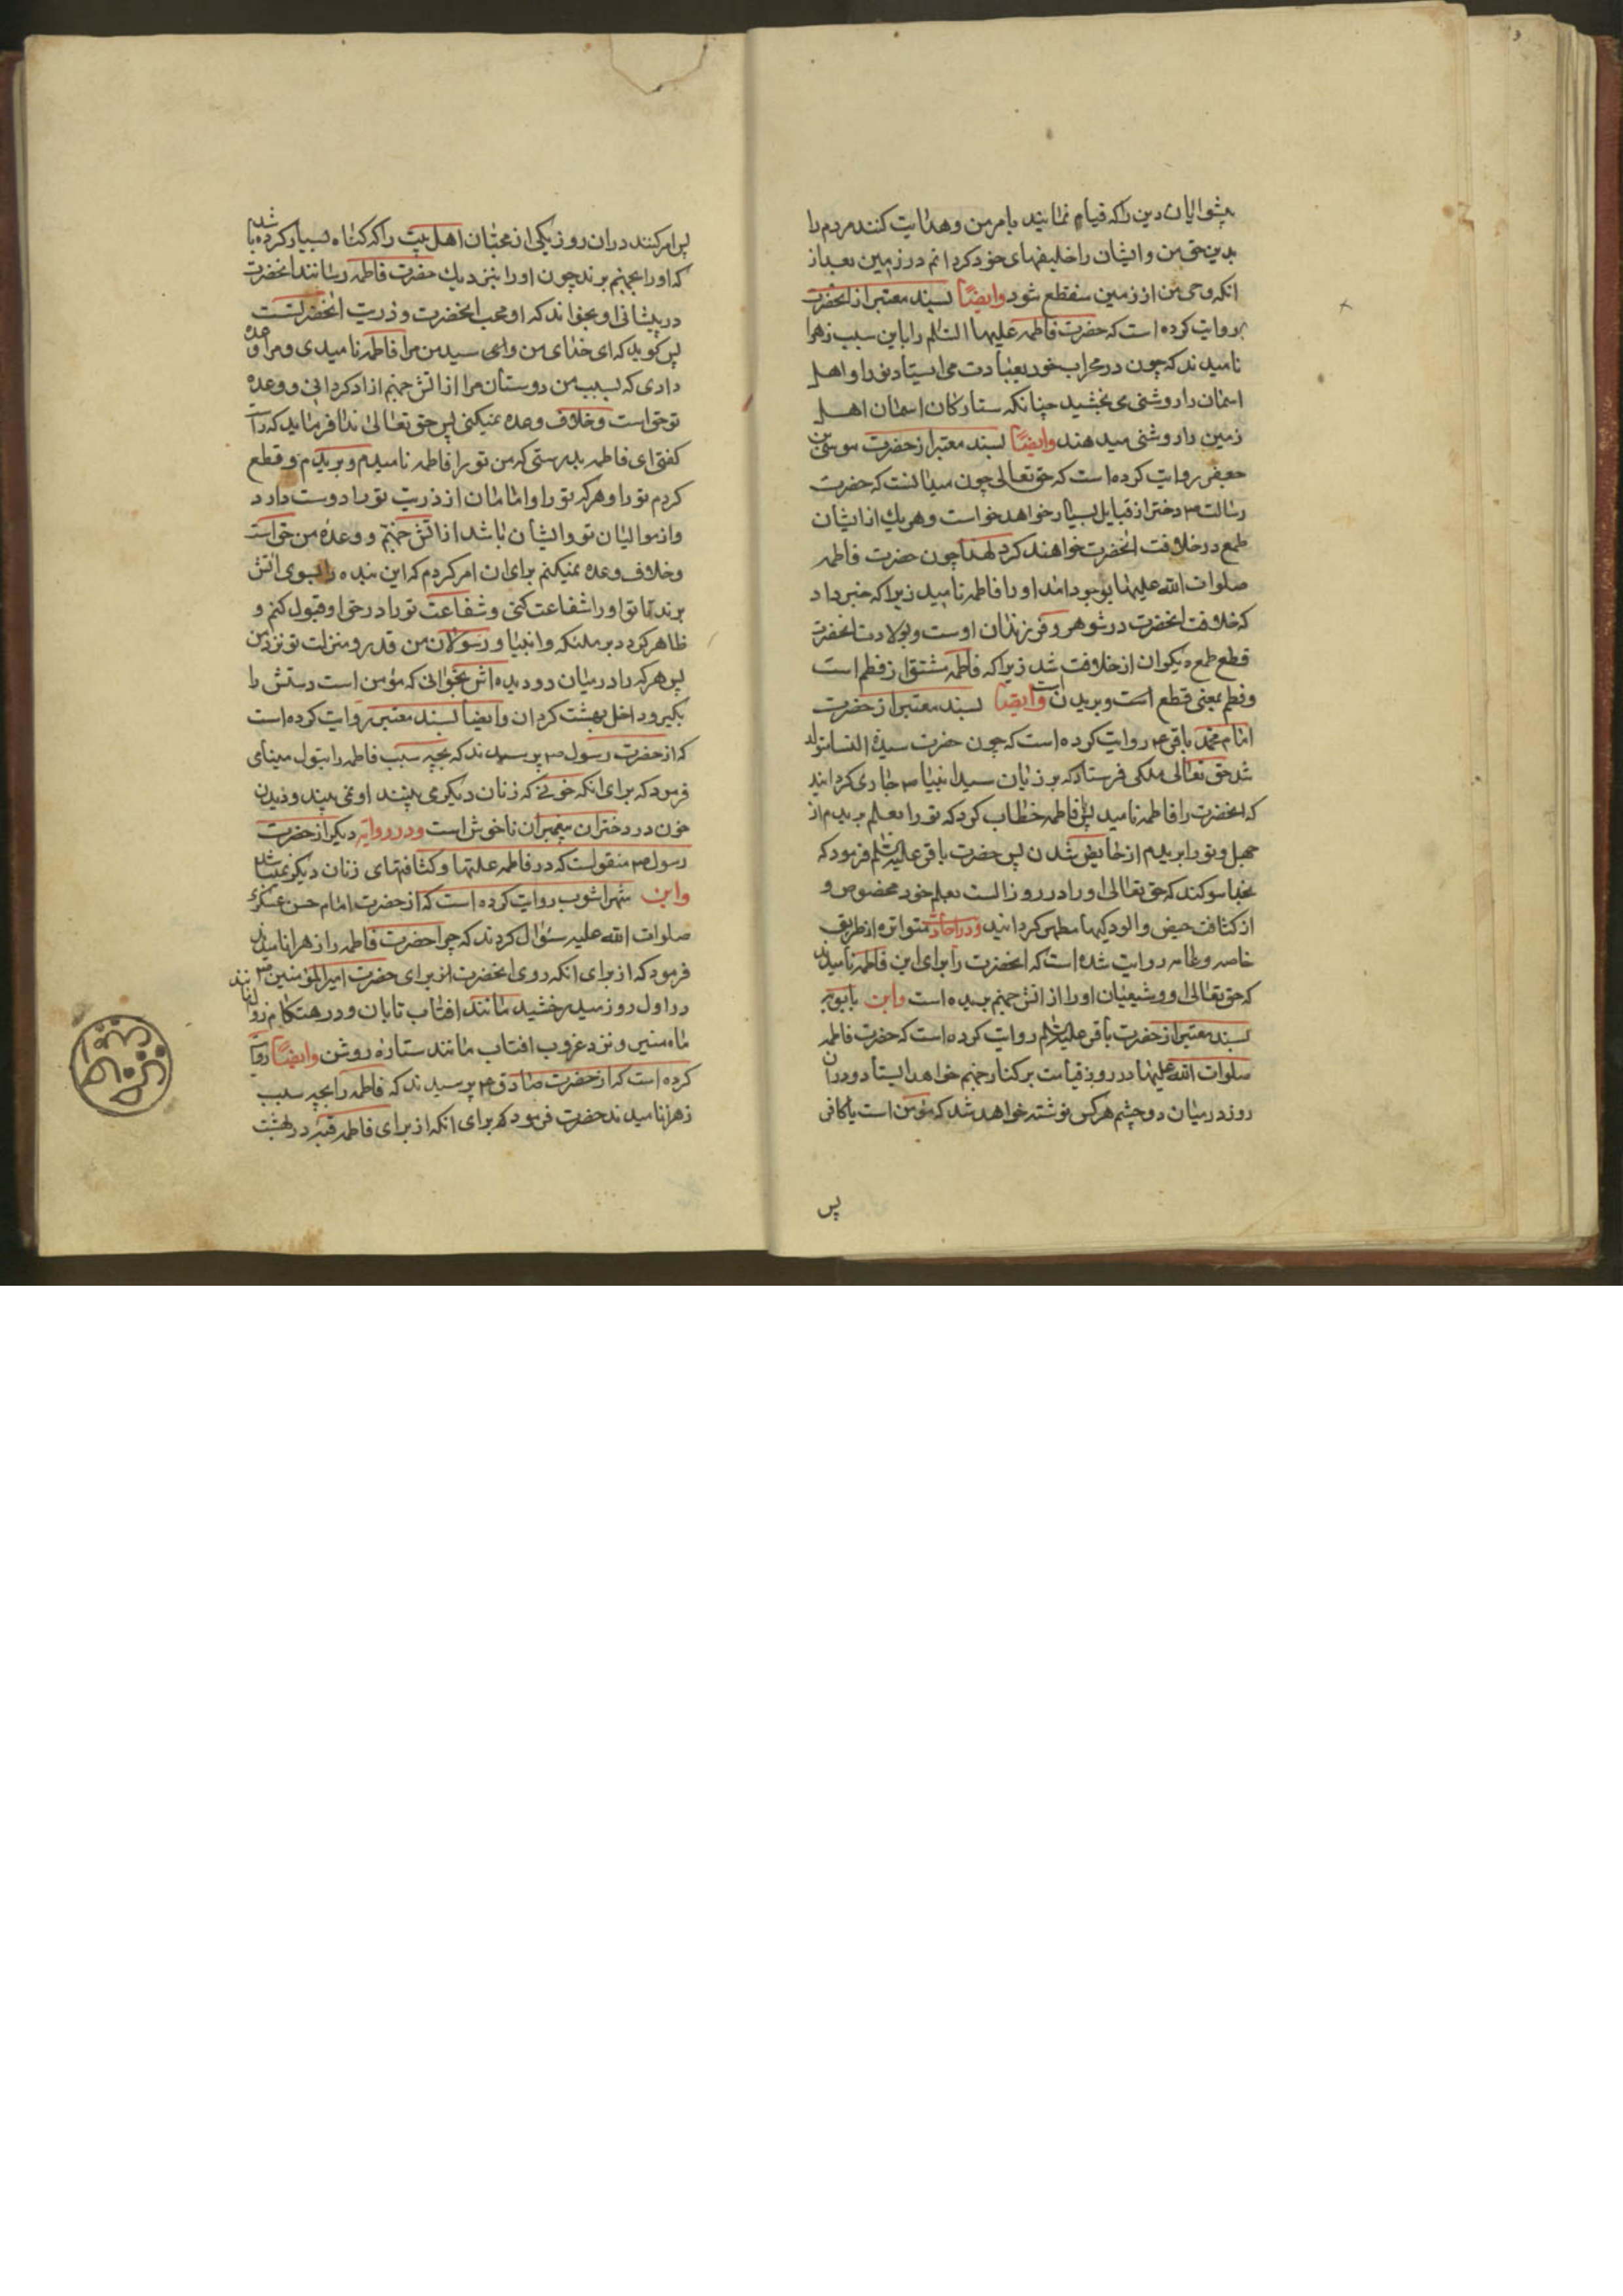 پیشوایان دین را که قیام نمایند بامر من و هدایت کنند مردم را
بدین حق من و ایشان را خلیفهای خود کردانم در زمین بعد از
انکه وحی من از زمین منقطع شود وایضاً بسند معتبر از انحضرت
روایت کرده است که حضرت فاطمه علیها السّلم را باین سبب زهرا
نامیدند که چون در محراب خود بعبادت می ایستاد نور او اهل
اسمان را روشنی می بخشید چنانکه ستارکان اسمان اهل
زمین را روشنی میدهند وایضاً بسند معتبر از حضرت موسی بن
جعفر روایت کرده است که حق تعالی چون میدانست که حضرت
رسالت ص دختر از قبایل بسیار خواهد خواست و هر یك از ایشان
طمع در خلافت انحضرت خواهند کرد لهذا چون حضرت فاطمه
صلوات الله علیها بوجود امد او را فاطمه نامید زیرا که خبر داد
که خلافت انحضرت در شوهر و فرزندان اوست و بولادت انحضرت
قطع طمع دیکران از خلافت شد زیرا که فاطمه مشتق از فطم است
و فطم بمعنی قطع است و بریدن است وایضاً بسند معتبر از حضرت
امام محمد باقر ع روایت کرده است که چون حضرت سیدة النسا متولد
شد حق تعالی ملکی فرستاد که بر زبان سید انبیا ص جاری کردانید
که انحضرت را فاطمه نامید پس فاطمه خطاب کرد که تو را بعلم بریدم از
جهل و تو را بریدم از حایض شدن پس حضرت باقر علیه السّلم فرمود که
بخدا سوکند که حق تعالی او را در روز الست بعلم خود مخصوص و
از کثافت حیض و الودکیها مطهر کردانید ودر احادیث متواتره از طریق
خاصه و عامه روایت شده است که انحضرت را برای این فاطمه نامیدند
که حق تعالی او و شیعیان او را از اتش جهنم بریده است وابن بابویه
بسند معتبر از حضرت باقر علیه السّلم روایت کرده است که حضرت فاطمه
صلوات الله علیها در روز قیامت بر کنار جهنم خواهد ایستاد و در ان
روز در میان دو چشم هر کس نوشته خواهد شد که مؤمن است یا کافر
پس
پس امر کنند در ان روز یکی از محبّان اهل بیت را که کناه بسیار کرده باشد
که او را بجهنم برند چون او را بنزدیك حضرت فاطمه رسانند انحضرت
در پیشانی او بخواند که او محب انحضرت و ذریت انحضرتست
پس کوید که ای خدای من وای سید من مرا فاطمه نامیدی و مرا وعده
دادی که بسبب من دوستان مرا از اتش جهنم ازاد کردانی و وعده
تو حق است و خلاف وعده نمیکنی پس حق تعالی ندا فرماید که راست
کفتی ای فاطمه بدرستی که من تو را فاطمه نامیدم و بریدم و قطع
کردم تو را و هر که تو را و امامان از ذریت تو را دوست دارد
و از موالیان تو و ایشان باشد از اتش جهنم و وعدهٔ من حق است
و خلاف وعده نمیکنم برای ان امر کردم که این بنده را بسوی اتش
برند تا تو او را شفاعت کنی و شفاعت تو را در حق او قبول کنم و
ظاهر کردد بر ملئکه و انبیا و رسولان من قدر و منزلت تو نزد من
پس هر که را در میان دو دیده اش بخوانی که مؤمن است دستش را
بکیر و داخل بهشت کردان وایضاً بسند معتبر روایت کرده است
که از حضرت رسول ص پرسیدند که بچه سبب فاطمه را بتول مینامی
فرمود که برای انکه خونی که زنان دیکر می بینند او نمی بیند و دیدن
خون در دختران پیغمبران ناخوش است ودر روایة دیکر از حضرت
رسول ص منقولست که در فاطمه علتها و کثافتهای زنان دیکر نمیباشد
وابن شهراشوب روایت کرده است که از حضرت امام حسن عسکری
صلوات الله علیه سئوال کردند که چرا حضرت فاطمه را زهرا نامیدند
فرمود که از برای انکه روی انحضرت از برای حضرت امیرالمؤمنین ع
در اول روز میدرخشید مانند افتاب تابان و در هنکام زوال مانند
ماه منیر و نزد غروب افتاب مانند ستارهٔ روشن وایضاً روایت
کرده است که از حضرت صادق ع پرسیدند که فاطمه را بچه سبب
زهرا نامیدند حضرت فرمود که برای انکه از برای فاطمه قبّه در بهشت